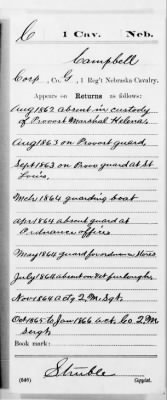 C | 1 Cav. | Neb.
Campbell
Corp, Co. G, 1 Reg't Nebraska Cavalry.
Appears on Returns as follows:
Aug 1862 absent in custody
of Provost Marshal Helena,
Aug 1863 on Provost guard,
Sept 1863 on Provo guard at St
Louis,
Mch 1864 guarding boat
Apr 1864 absent guard at
Ordnance office
May 1864 guard for ordnance stores
July 1864 absent on Vet furlough
Nov 1864 actg Q. M. Sgt.
Oct 1865 to Jan 1866 act. Co Q M
Sergt
Book mark:
Struble
(646) Copyist.